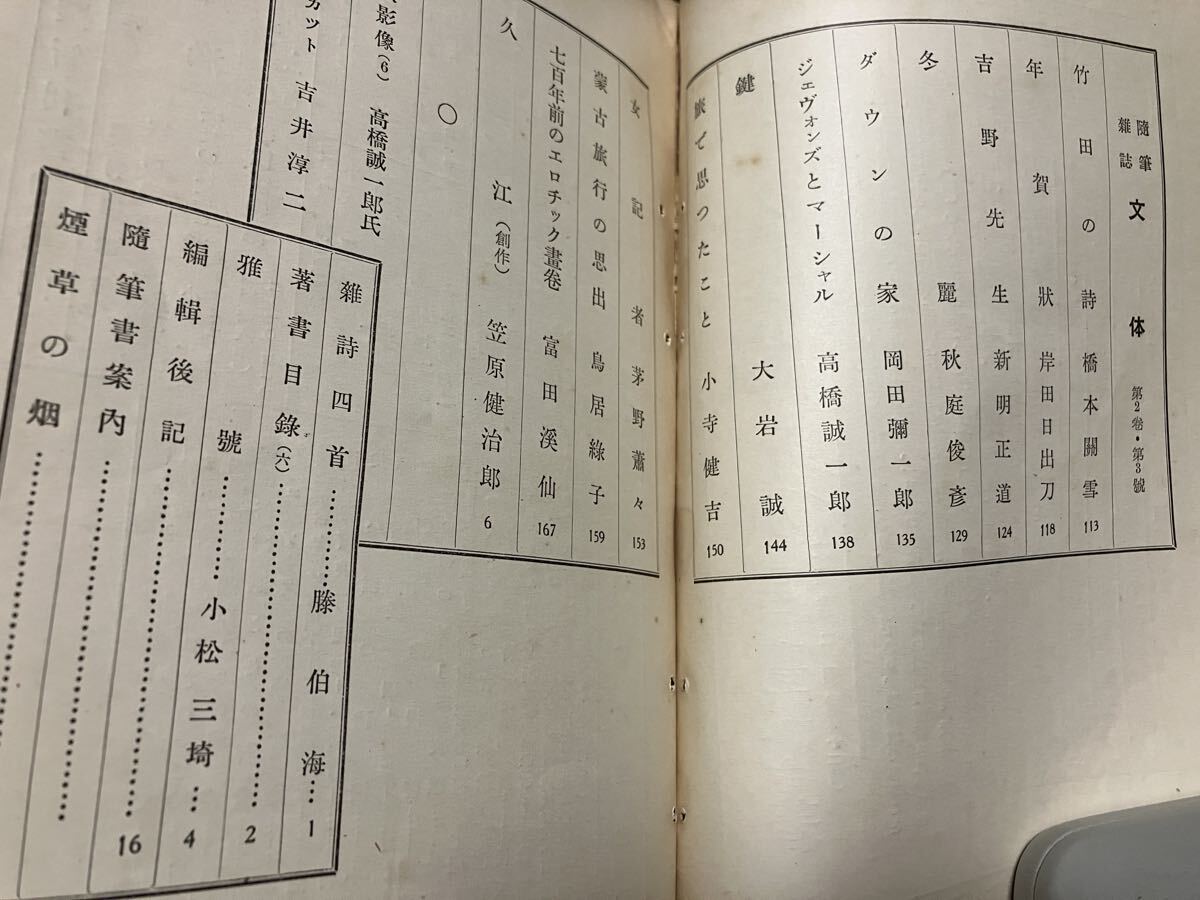 隨筆雜誌 文体 第2卷・第3號
竹田の詩 橋本關雪 113
年賀狀 岸田日出刀 118
吉野先生 新明正道 124
冬麗 秋庭俊彥 129
ダウンの家 岡田彌一郎 135
ジェヴォンズとマーシャル 高橋誠一郎 138
鍵 大岩誠 144
旅で思つたこと 小寺健吉 150
女記者 茅野蕭々 153
蒙古旅行の思出 鳥居綠子 159
七百年前のエロチック畫卷 富田溪仙 167
久江(創作) 笠原健治郎 6
○
影像(6) 高橋誠一郎氏
カット 吉井淳二
雜詩四首……滕伯海…1
著書目錄(六)
雅號……2
編輯後記……小松三埼…4
隨筆書案內……16
煙草の烟……